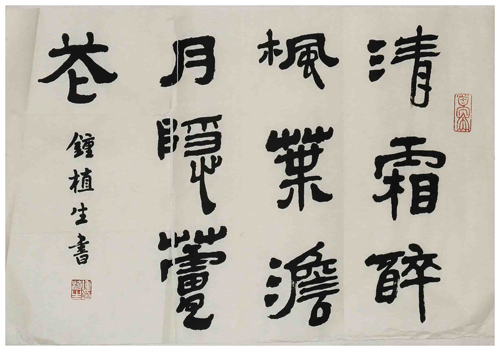 清霜醉
楓葉澹
月隱蘆
花
鍾植生書